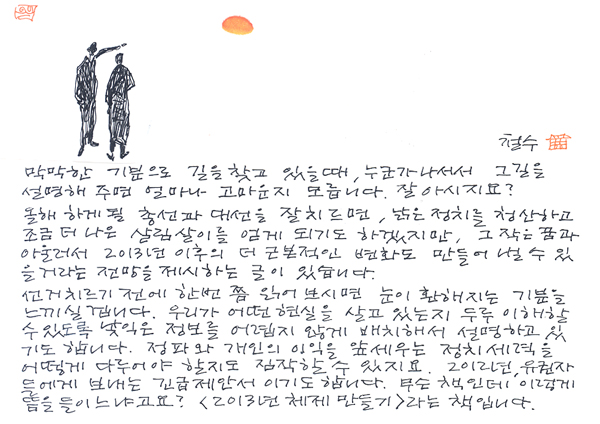 철수
막막한 기분으로 길을 찾고 있을 때, 누군가 나서서 그 길을
설명해 주면 얼마나 고마운지 모릅니다. 잘 아시지요?
올해 하게 될 총선과 대선을 잘 치르면, 낡은 정치를 청산하고
조금 더 나은 살림살이를 얻게 되기도 하겠지만, 그 작은 꿈과
아울러서 2013년 이후의 더 근본적인 변화도 만들어 낼 수 있
을 거라는 전망을 제시하는 글이 있습니다.
선거 치르기 전에 한번 쯤 읽어 보시면 눈이 환해지는 기분을
느끼실 겁니다. 우리가 어떤 현실을 살고 있는지 두루 이해할
수 있도록 낯익은 정보를 어렵지 않게 배치해서 설명하고 있
기도 합니다. 정파와 개인의 이익을 앞세우는 정치세력을
어떻게 다루어야 할지도 짐작할 수 있지요. 2012년, 유권자
들에게 보내는 긴급제안서이기도 합니다. 무슨 책인데 이렇게
뜸을 들이느냐고요? <2013년 체제 만들기>라는 책입니다.